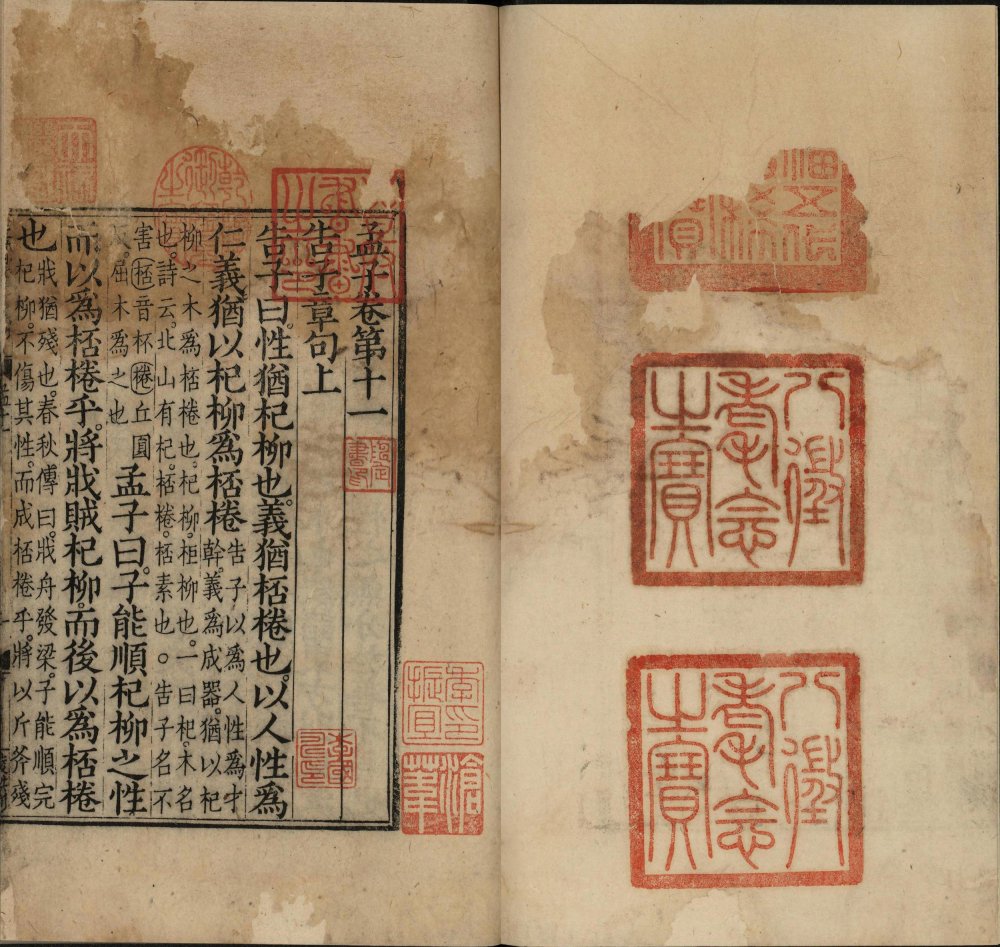 八徵耄念之寶
八徵耄念之寶
孟子卷第十一
告子章句上
告子曰。性猶杞柳也。義猶桮棬也。以人性爲
仁義猶以杞柳爲桮棬
告子以爲人性爲才
幹。義爲成器。猶以杞
柳之木爲桮棬也。杞柳。柜柳也。一曰杞。木名
也。詩云。北山有杞。桮棬。桮素也。○告子名不
害桮音杯棬丘圓
反。屈木爲之也
孟子曰。子能順杞柳之性
而以爲桮棬乎。將戕賊杞柳。而後以爲桮棬
也
戕猶殘也。春秋傳曰。戕舟發梁。子能順完
杞柳。不傷其性。而成桮棬乎。將以斤斧殘
季振宜印
滄葦
乾隆御覽之寶